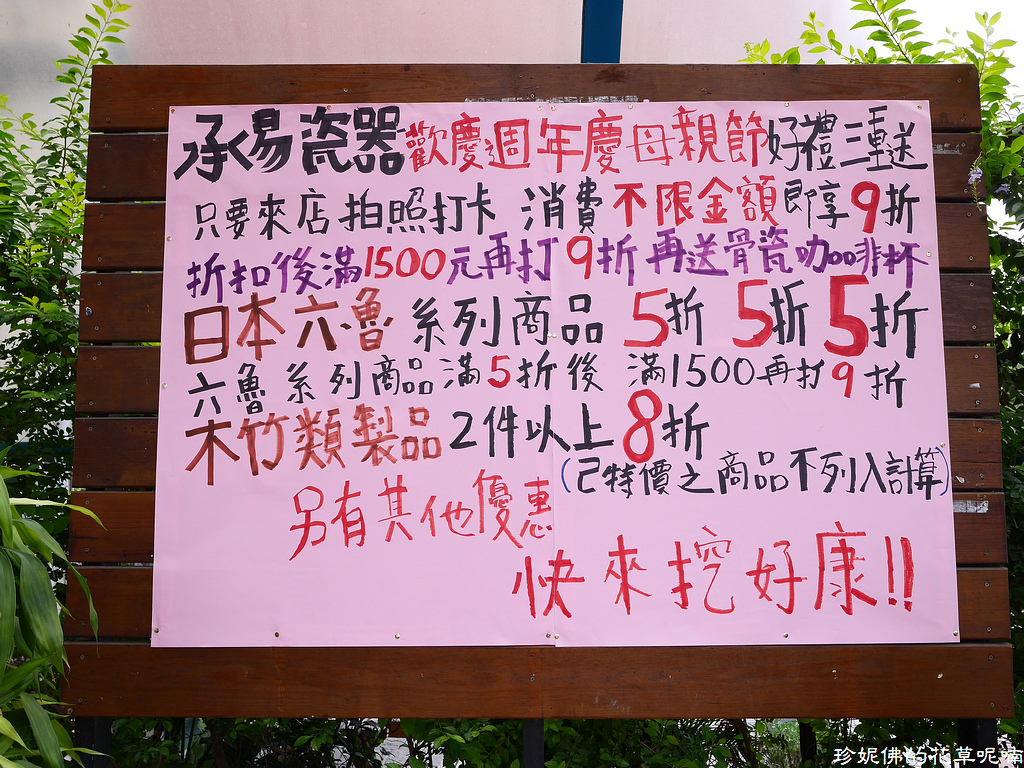 承易瓷器歡慶週年慶母親節好禮三重送
只要來店拍照打卡 消費不限金額即享9折
折扣後滿1500元再打9折再送骨瓷咖啡杯
日本六魯系列商品 5折 5折 5折
六魯系列商品滿5折後 滿1500再打9折
木竹類製品2件以上8折
(己特價之商品不列入計算)
另有其他優惠
快來挖好康!!
珍妮佛的花草呢喃